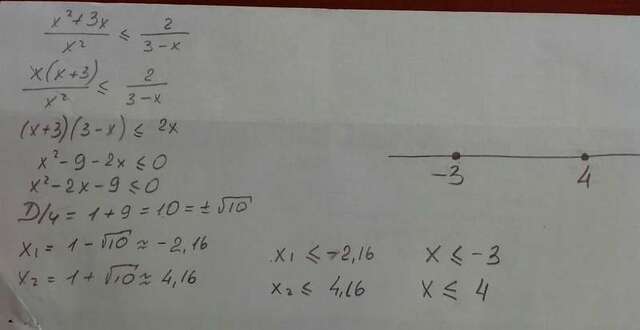 (x²+3x)/x² ≤ 2/(3-x)
(x(x+3))/x² ≤ 2/(3-x)
(x+3)(3-x) ≤ 2x
x²-9-2x ≤ 0
x²-2x-9 ≤ 0
D/4 = 1+9 = 10 = ±√10
x₁ = 1-√10 ≈ -2,16
x₂ = 1+√10 ≈ 4,16
x₁ ≤ -2,16
x₂ ≤ 4,16
x ≤ -3
x ≤ 4
-3 4